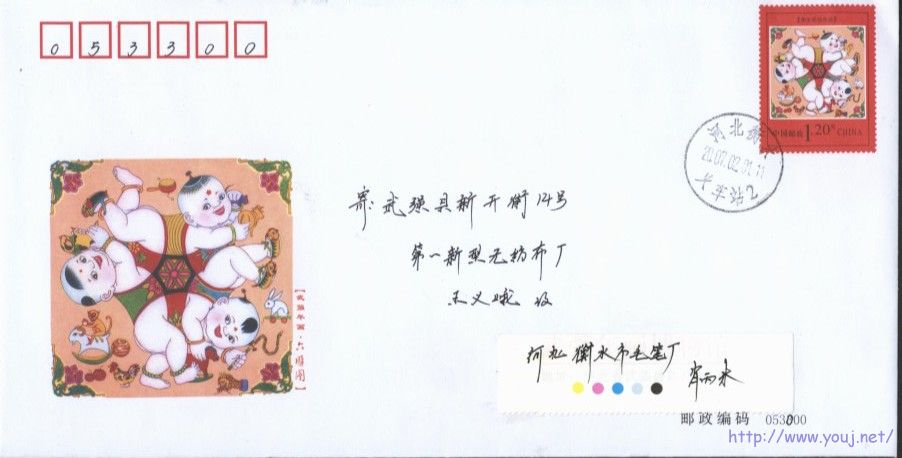 053300
中国邮政 1.20元 CHINA
河北
2007.02.01.11
火车站2
寄:武强县新开街14号
第一新型无纺布厂
王义娥 收
【武强年画·六顺图】
河北衡水市毛笔厂
肖雨来
邮政编码 053000
http://www.youj.net/